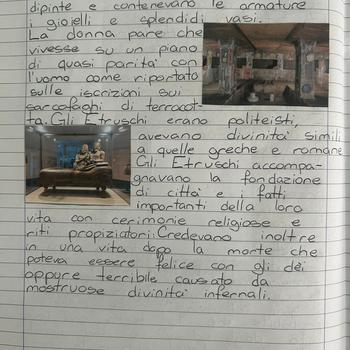 dipinte e contenevano le armature
i gioielli e splendidi vasi.
La donna pare che
vivesse su un piano
di quasi parità con
l'uomo come riportato
sulle iscrizioni sui
sarcofaghi di terracot-
ta. Gli Etruschi erano politeisti,
avevano divinità simili
a quelle greche e romane
Gli Etruschi accompa-
gnavano la fondazione
di città e i fatti
importanti della loro
vita con cerimonie religiose e
riti propiziatori. Credevano inoltre
in una vita dopo la morte che
poteva essere felice con gli dèi
oppure terribile causato da
mostruose divinità infernali.